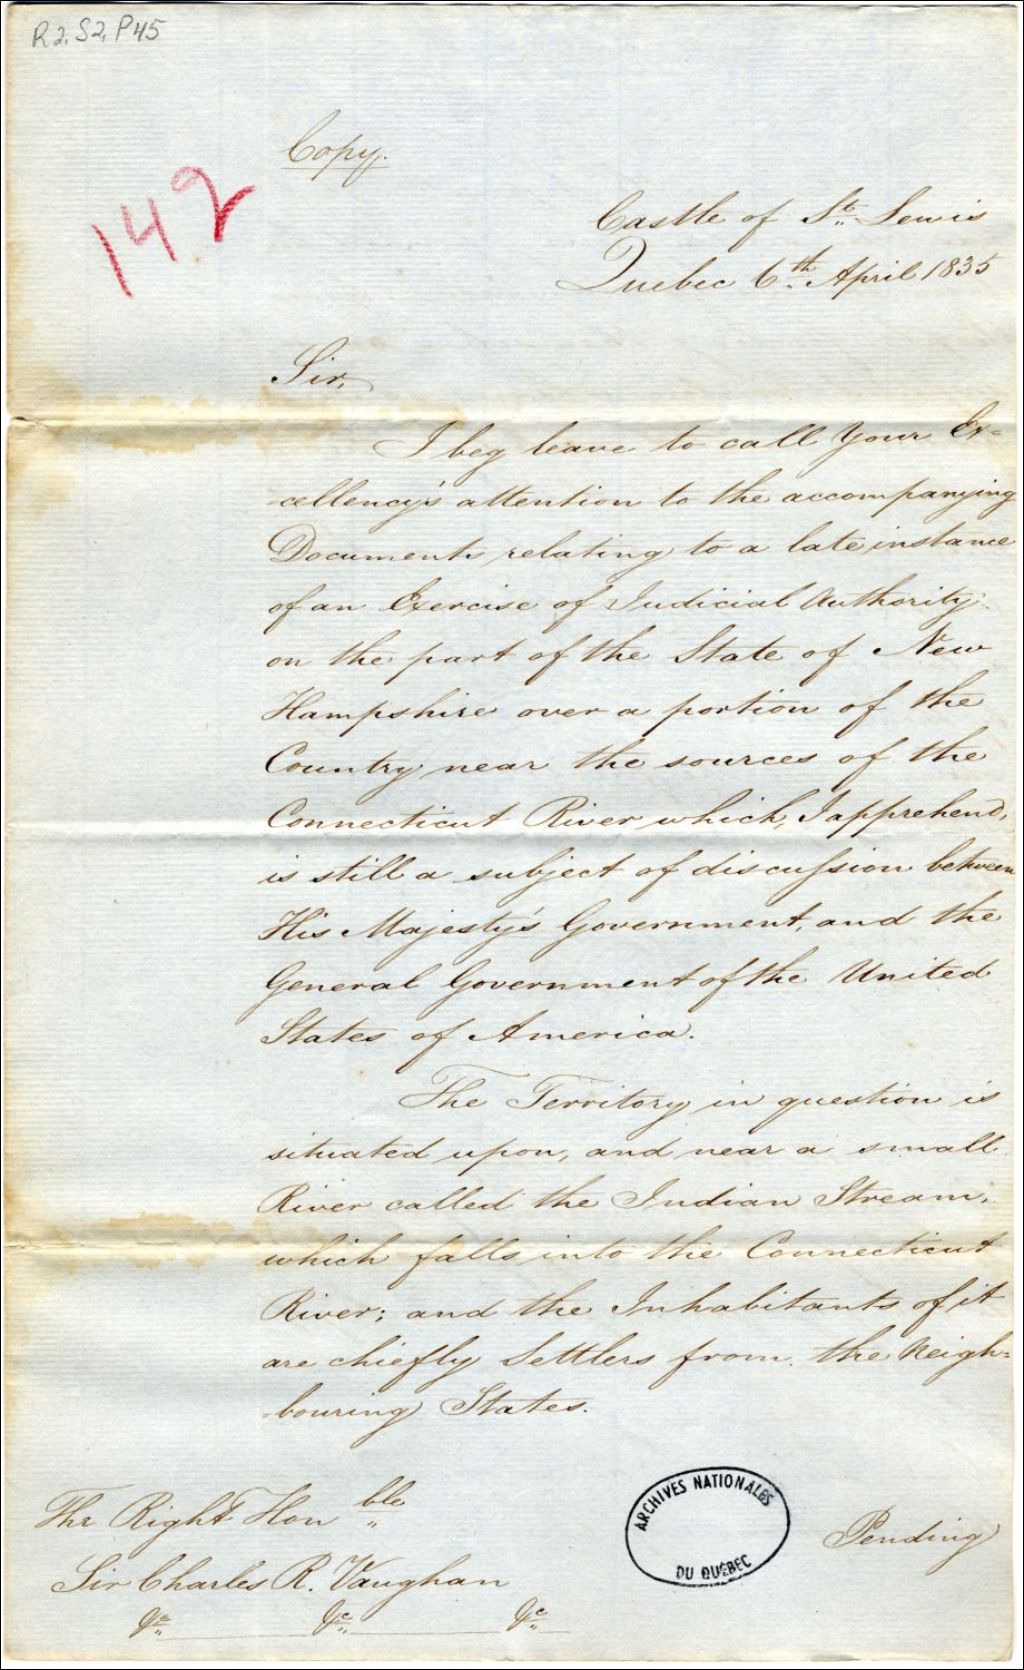 R2, S2, P45
Copy.
142
Castle of St. Lewis
Quebec 6th April 1835
Sir,
I beg leave to call Your Ex=
-cellency's attention to the accompanying
Documents relating to a late instance
of an Exercise of Judicial Authority
on the part of the State of New
Hampshire over a portion of the
Country near the sources of the
Connecticut River which, I apprehend,
is still a subject of discussion between
His Majesty's Government, and the
General Government of the United
States of America.
The Territory in question is
situated upon, and near a small
River called the Indian Stream,
which falls into the Connecticut
River; and the Inhabitants of it
are chiefly Settlers from the Neigh=
-bouring States.
The Right Honble
Sir Charles R. Vaughan
&c &c &c
ARCHIVES NATIONALES
DU QUÉBEC
Pending